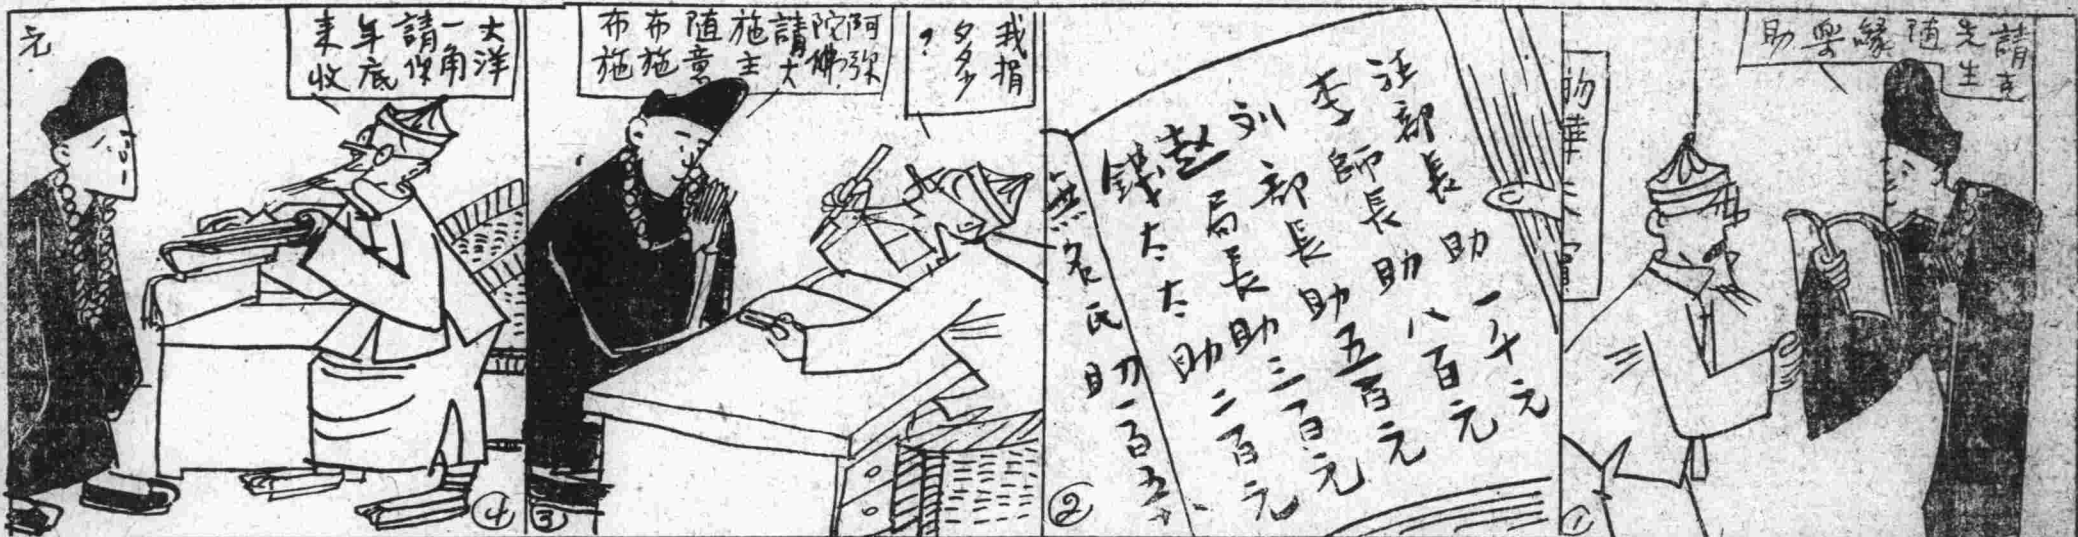 請克
先生
随
緣
樂
助
物華天寶
①
汪部長助一千元
李師長助八百元
刘部長助五百元
赵局長助三百元
錢太太助二百元
無名氏助一百五十
②
我捐
多少
?
阿弥
陀佛
請大
施主
随意
布施
布施
③
大洋
一角
請你
年底
来收
元
④